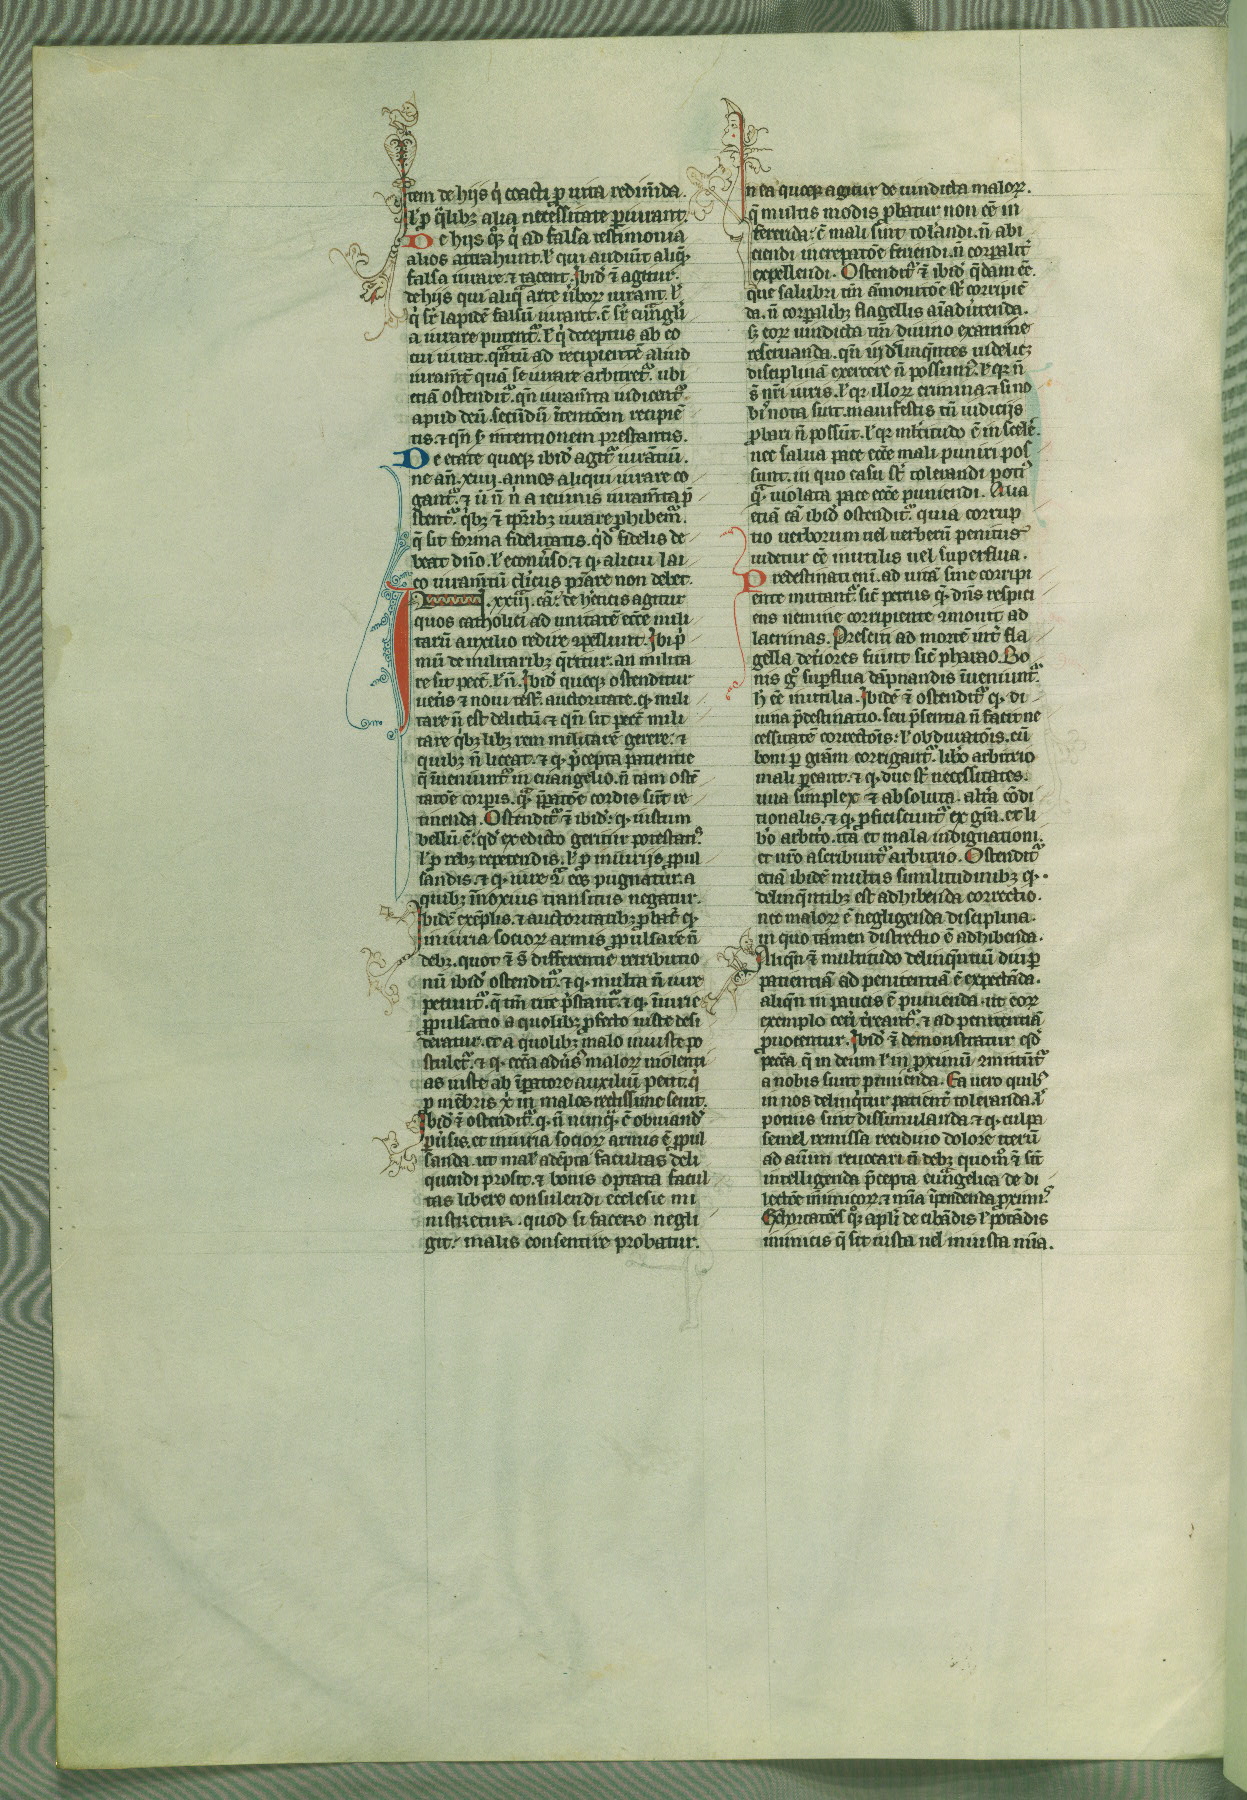 Item de hijs q̇ coacti ꝑ uita redim̄da.
ł ꝓ q̄libꝫ alia necessitate ꝑiurant.
De hijs qꝫ q̇ ad falsa testimonia
alios attrahunt. ł qui audiūt aliq̇ꝫ
falsa iurare. ⁊ tacent. Ibid̄ ⁊̄ agitur.
de hijs qui aliq̄ arte ūboꝝ iurant. ł
q̇ sr̄ lapidē falsū iurant. ē sr̄ euāgli
a iurare putent᷑. ł q̇ deceptus ab eo
cui iurat. q̄ntū ad recipientē aliud
iuram̄t quā se iurare arbitret᷑. ubi
etiā ostendit᷑. qn̄ iuram̄ta iudicent᷑.
apud deū. secūdū ītentōem recipiē
tis. ⁊ qn̄ ẜ intentionem prestantis.
De etate quoqꝫ ibid̄ agit᷑ iurātiū.
ne an̄. xiiii. annos aliqui iurare co
gant᷑. ⁊ ū n̄ n̄ a ieiunis iuram̄ta p̄
stent᷑. q̇bꝫ ⁊̄ tp̄ribꝫ iurare ꝓhibem̄.
q̄ sit forma fidelitatis. qd̄ fidelis de
beat dn̄o. ł econūso. ⁊ qꝫ alicui lai
co iuram̄tū clīcus p̄tare non debet.
In .xxiij. cā. de hēticis agitur
quos catholici ad unitatē ecc̄e mili
tarū auxilio redire ꝯpellunt. Ibi p̄
mū de militaribꝫ q̄ritur. an milita
re sit pecc̄. ł n̄. Ibid̄ quoqꝫ ostenditur
uet̄is ⁊ noui test̄. auctoritate. qꝫ mili
tare n̄ est delictū. ⁊ qn̄ sit pecc̄ mili
tare. q̇bꝫ libꝫ rem militarē gerere. ⁊
quibꝫ n̄ liceat. ⁊ qꝫ p̄cepta patientie
q̄ īueniunt᷑ in euangelio. n̄ tam ostē
tatōe corpis. q̄ p̄patōe cordis sūt re
tinenda. Ostendit᷑ ⁊̄ ibid̄. qꝫ iustum
bellū ē. qd̄ ex edicto geritur potestatꝭ.
ł ꝓ rebꝫ repetendis. ł ꝓ iniurijs ꝓpul
sandis. ⁊ qꝫ iure ꝯ̄ eos pugnatur. a
quibꝫ īnoxius transitus negatur.
Ibidē exēplis. ⁊ auctoritatibꝫ ꝓbat᷑ qꝫ
iniuria socioꝝ armis ꝓpulsare n̄
debꝫ. quot ⁊̄ s̄ differentie retributio
nū ibid̄ ostendit᷑. ⁊ qꝫ multa n̄ iure
petunt᷑. q̄ tn̄ rite p̄stant᷑. ⁊ qꝫ īiurie
ꝓpulsatio a quolibꝫ ꝓfecto iuste desi
deratur. et a quolibꝫ malo iniuste po
stulet᷑. ⁊ qꝫ ecc̄a adūs malorꝝ uiolenti
as iuste ab īꝑatore auxiliū petit. q̇
ꝓ mēbris x̄ in malos rectissime seuit.
Ibid̄ ⁊̄ ostendit᷑. qꝫ n̄ nunq̄. ē obuiand̄
ꝑuersis. et iniuria socioꝝ armis ē ꝓpul
sanda. ut mal̄ adēpta facultas deli
quendi prosit. ⁊ bonis optata facul
tas libere consulendi ecclesie mi
nistretur. quod si facere negli
git. malis consentire probatur.
In ea quoqꝫ agitur de uindicta maloꝝ.
q̄ multis modis ꝓbatur non eē in
ferenda. ē mali sunt tolādi. n̄ abi
ciendi increpatōe feriendi. n̄ corpalit᷑
expellendi. Ostendit᷑ ⁊̄ ibid̄ q̄dam eē.
que salubri tn̄ āmonitōe st̄ corripiē
da. n̄ corpalibꝫ flagellis aīaduertenda.
sꝫ eoꝝ uindicta tm̄ diuino examine
reseruanda. qn̄ in delinq̄ntes uidelicꝫ
disciplinā exercere n̄ possum᷒. ł qꝛ n̄
s̄ nr̄i iuris. ł qꝛ illoꝝ crimina. ⁊ si no
bꝭ nota sunt. manifestis tn̄ iudicijs
ꝓbari n̄ possūt. ł qꝛ multitudo ē in scele.
nec salua pace ecc̄e mali puniri pos
sunt. in quo casu st̄ tolerandi poti᷒
q̄. uiolata pace ecc̄e puniendi. Alia
etiā cā ibid̄ ostendit᷑. quia corrup
tio uerborum uel uerberū penitus
uidetur eē inutilis uel superflua.
Predestinati eni. ad uitā sine corripi
ente mutant᷑. sic̄ petrus q̄. dn̄s respici
ens nemine corripiente ꝯmouit ad
lacrimas. Presciti ad mortē int̄ fla
gella det̄iores fiunt sic̄ pharao. Bo
nis gͦ suꝑflua dāpnandis īueniunt᷑.
h̄ eē inutilia. Ibidē ⁊̄ ostendit᷑ qꝫ di
uina p̄destinatio. seu p̄sentia n̄ facit ne
cessitatē correctōis. ł obduratōis. cū
boni ꝑ gīam corrigant᷑. libo arbitrio
mali ꝑeant. ⁊ qꝫ due st̄ necessitates.
una simplex ⁊ absoluta. alt̄a cōdi
tionalis. ⁊ qꝫ ꝓficiscunt᷑ ex gīa. et li
b̄o arbit̄o. ita et mala indignationi.
et nr̄o ascribunt᷑ arbitrio. Ostendit᷑
etiā ibidē multis similitudinibꝫ qꝫ
delinq̄ntibꝫ est adhibenda correctio.
nec maloꝝ ē negligenda disciplina.
in quo tamen discretio ē adhibenda.
Aliqn̄ ⁊̄ multitudo delinq̄ntiū diu ꝑ
patientiā ad penitentiā ē expectāda.
aliqn̄ in paucis ē punienda. ut eoꝝ
exemplo cet̄i t̄reant᷑. ⁊ ad penitentiā
ꝓuocentur. Ibid̄ ⁊̄ demonstratur qd̄
pecc̄a q̄ in deum ł in ꝓximū ꝯmittūt᷑
a nobis sunt punienda. Ea uero quibꝰ
in nos delinq̇tur patient᷑ toleranda. ł
potius sunt dissimulanda. ⁊ qꝫ culpa
semel remissa recidiuo dolore iterū
ad aīum reuocari n̄ debꝫ. quom̄ ⁊̄ sit
intelligenda p̄cepta euāgelica de di
lectōe inimicoꝝ. ⁊ mīa īpendenda ꝓximꝭ.
Exhortatōes qꝫ apl̄i de cibādis ł potādis
inimicis q̄ sit iusta uel iniusta mīa.